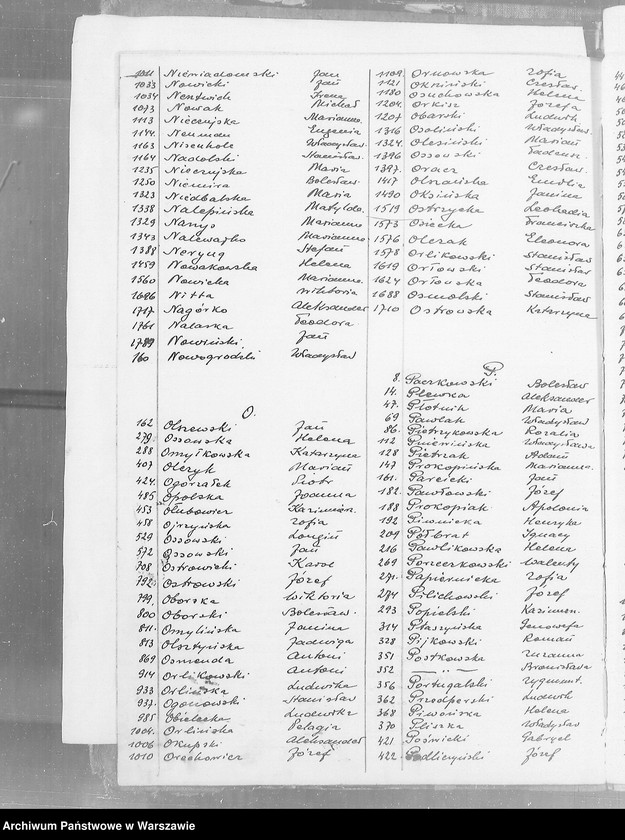 1021 Niewiadomski Jan
1033 Nowicki Jan
1034 Nentwich Irena
1073 Nowak Michał
1113 Niecenjska Marianna
1144 Neuman Eugenia
1163 Nisenholc Władysław
1164 Nadolski Stanisław
1235 Maria
1250 Niemira Bolesław
1323 Niedbalska Maria
1338 Nalepińska Matylda
1329 Marianna
1343 Nalewajko Marianna
1388 Neryng Stefan
1459 Nowakowska Helena
1560 Nowicka Marianna
1686 Nitta Wiktoria
1717 Nagórko Aleksander
1761 Teodora
1789 Nowiński Jan
160 Nowogrodzki Władysław
O.
162 Olszewski Jan
279 Ossowska Helena
288 Omyłkowska Katarzyna
407 Olczyk Marian
424 Ogórzałek Piotr
485 Opolska Joanna
453 Kazimierz
458 Ojrzyńska Zofia
529 Ossowski Longin
572 Ossowski Jan
708 Ostrowicki Karol
792 Ostrowski Józef
799 Oborska Wiktoria
800 Oborski Bolesław
811 Omylińska Janina
813 Olsztyńska Jadwiga
869 Osmenda Antoni
914 Orlikowski Antoni
933 Ludwika
937 Ogonowski Stanisław
985 Obielecka Ludwika
1004 Orlińska Pelagia
1006 Okupski Aleksander
1010 Orechowicz Józef
1109 Ornowska Zofia
1121 Okniński Czesław
1180 Osuchowska Helena
1204 Orkisz Józefa
1207 Obarski Ludwik
1316 Osoliński Władysław
1324 Olesiński Marian
1396 Ossowski Tadeusz
1397 Oracz Czesław
1417 Olszańska Emilia
1490 Oksińska Janina
1519 Ostrzycka Leokadia
1573 Osiecka Franciszka
1576 Olczak Eleonora
1578 Orlikowski Stanisław
1619 Orłowski Stanisław
1624 Orłowska Teodora
1688 Osmolski Stanisław
1710 Ostrowska Katarzyna
P.
8. Paczkowski Bolesław
14. Plewka Aleksander
47. Płotnik Maria
69 Pawlak Władysław
86. Pietrzykowska Rozalia
112 Pniewińska Władysława
128 Pietrzak Adam
147 Prokopińska Marianna
161. Parzicki Jan
182. Pawłowski Józef
188 Prokopiak Apolonia
192 Piwnicka Henryka
209 Półbrat Ignacy
216 Pawlikowska Helena
269 Porczerkowski Walenty
271. Papiernicka Zofia
274 Pilichowski Józef
293 Popielski Kazimierz
314 Ptaszyńska Genowefa
328 Pijkowski Roman
351 Postkowska Zuzanna
352 — „ — Bronisława
356 Portugalski Zygmunt
362 Przedperski Ludwik
368 Piwońska Helena
370 Pliszka Władysław
421 Poświcki Gabryel
422 Podliczyński Józef
Archiwum Państwowe w Warszawie